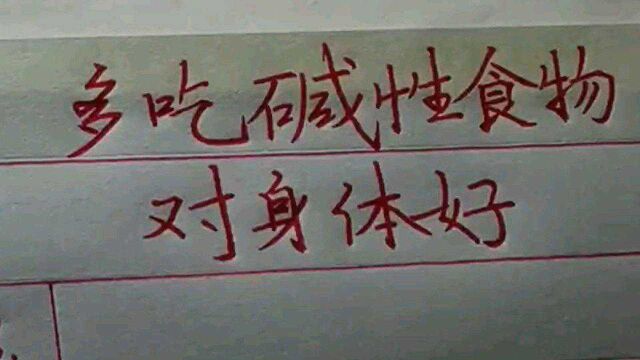 多吃碱性食物
对身体好